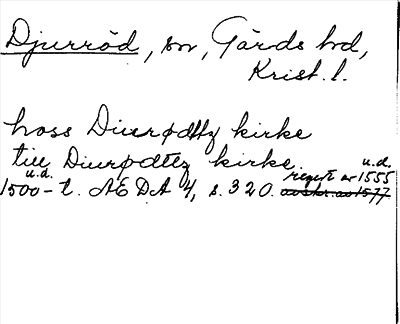 Djurröd, sn, Gärds hd,
Krist. l.
hoss Diurødtz kirke
till Diurødtz kirke.
u.d. u.d.
1500-t. ÆDA 4, s. 320. regest av 1555
avskr. av 1577